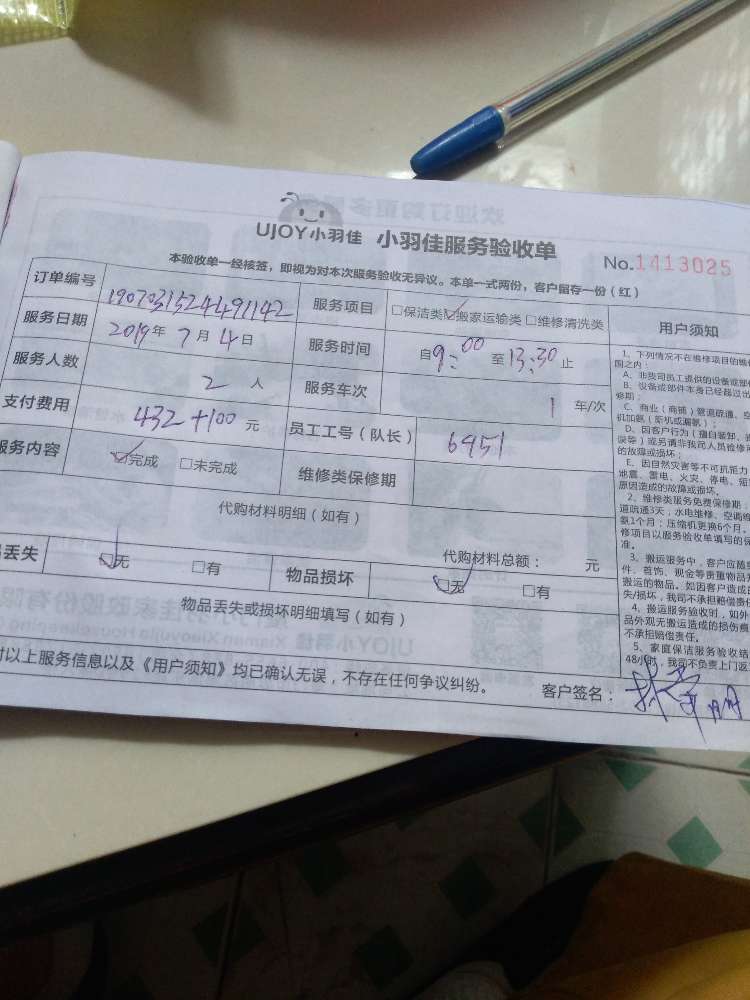 UJOY小羽佳 小羽佳服务验收单 No.1413025
本验收单一经接签，即视为对本次服务验收无异议。本单一式两份，客户留存一份（红）
订单编号 1907031524491142 服务项目 □保洁类 ☑搬家运输类 □维修清洗类
服务日期 2019年7月4日 服务时间 自9:00至13:30止
服务人数 2人 服务车次 1车/次
支付费用 432+100元 员工工号（队长） 6951
服务内容 ☑完成 □未完成 维修类保修期
代购材料明细（如有）
代购材料总额： 元
丢失 ☑无 □有 物品损坏 ☑无 □有
物品丢失或损坏明细填写（如有）
对以上服务信息以及《用户须知》均已确认无误，不存在任何争议纠纷。 客户签名：
用户须知
1、下列情况不在维修项目的维
围之内：
A、非我司员工提供的设备或部
B、设备或部件本身已经超过出
修期；
C、商业（商铺）管道疏通、空
机加氨（新机或漏氨）；
D、因客户行为（擅自装卸、
误导）或另请非我司人员检修
的故障或损坏；
E、因自然灾害等不可抗拒力
地震、雷电、火灾、停电、短
原因造成的故障或损坏。
2、维修类服务免费保修期：
道疏通3天；水电维修、空调维
氨1个月；压缩机更换6个月。
修项目以服务验收单填写的保
准。
3、搬运服务中，客户应随
件、首饰、现金等贵重物品
搬运的物品。如因客户造成的
失/损坏，我司不承担赔偿责
4、搬运服务验收时，如外
品外观无搬运造成的损伤
不承担赔偿责任。
5、家庭保洁服务验收结
48小时，我司不负责上门返